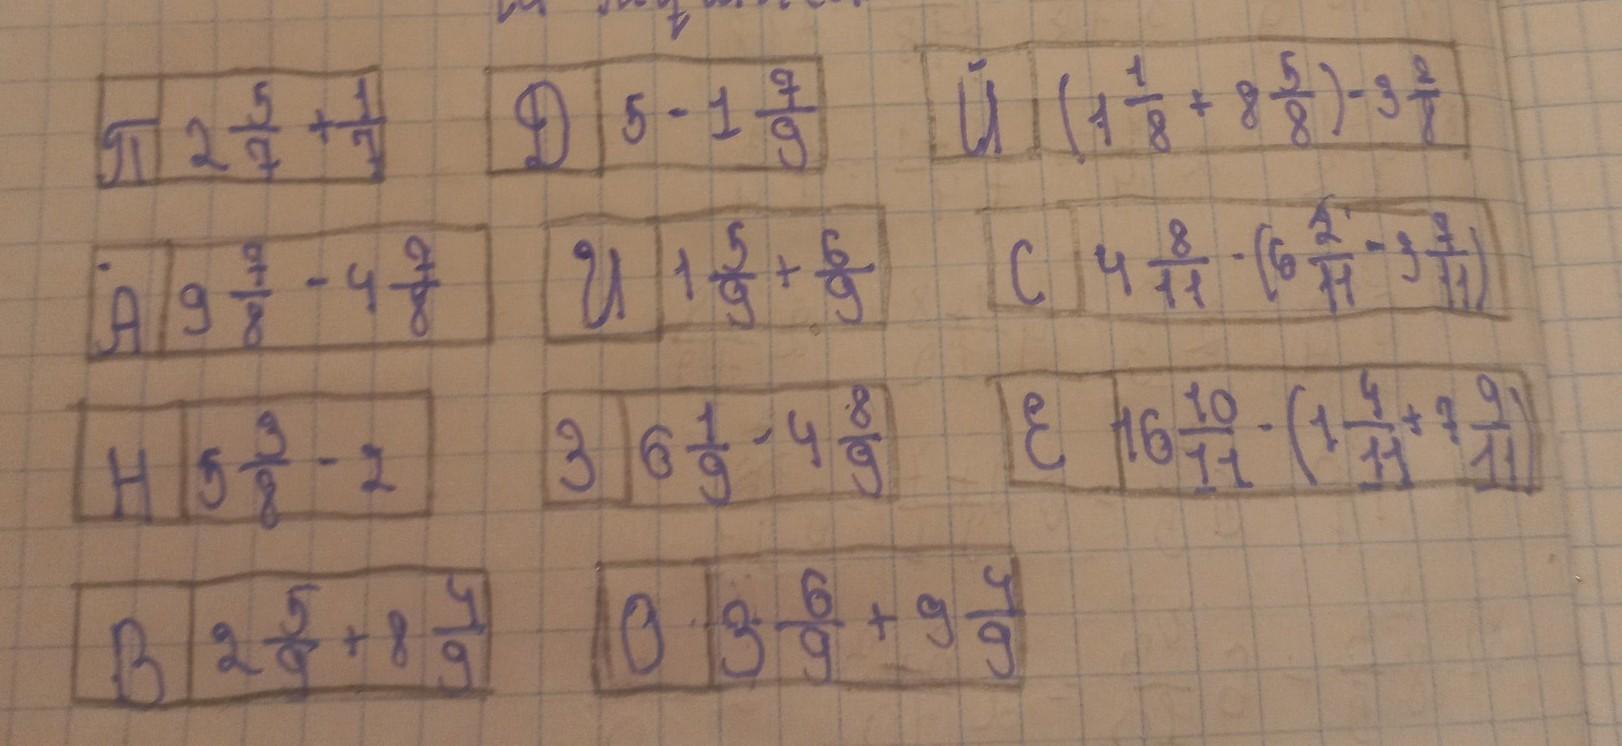 П 2 5/7 + 1/7 Д 5 - 1 7/9 Й (1 1/8 + 8 5/8) - 3 2/8
А 9 7/8 - 4 7/8 И 1 5/9 + 6/9 С 4 8/11 - (6 2/11 - 3 7/11)
Н 5 3/8 - 2 З 6 1/9 - 4 8/9 Е 16 10/11 - (1 4/11 + 7 9/11)
В 2 5/9 + 8 4/9 О 3 6/9 + 9 4/9